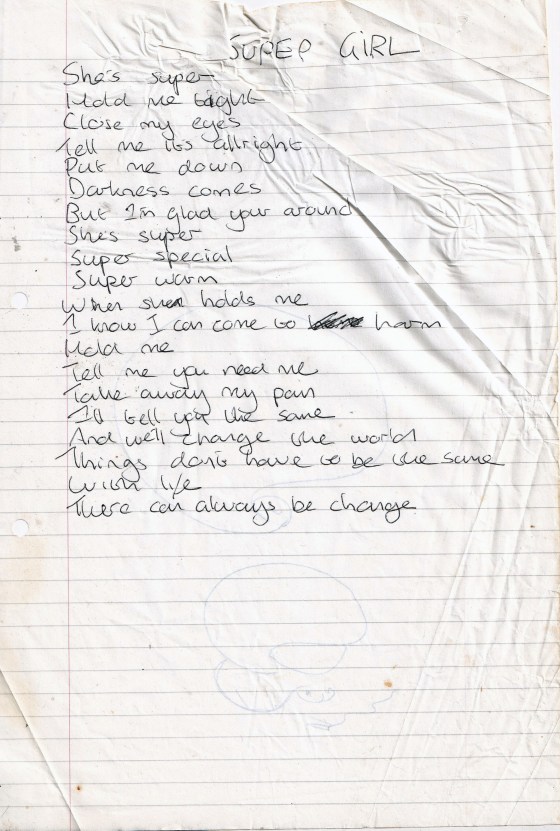 SUPER GIRL
She's super
Hold me tight
Close my eyes
Tell me it's allright
Put me down
Darkness comes
But I'm glad your around
She's super
Super special
Super warm
When she holds me
I know I can come to harm
Hold me
Tell me you need me
Take away my pain
I'll tell you the same
And we'll change the world
Things don't have to be the same
With life
There can always be change